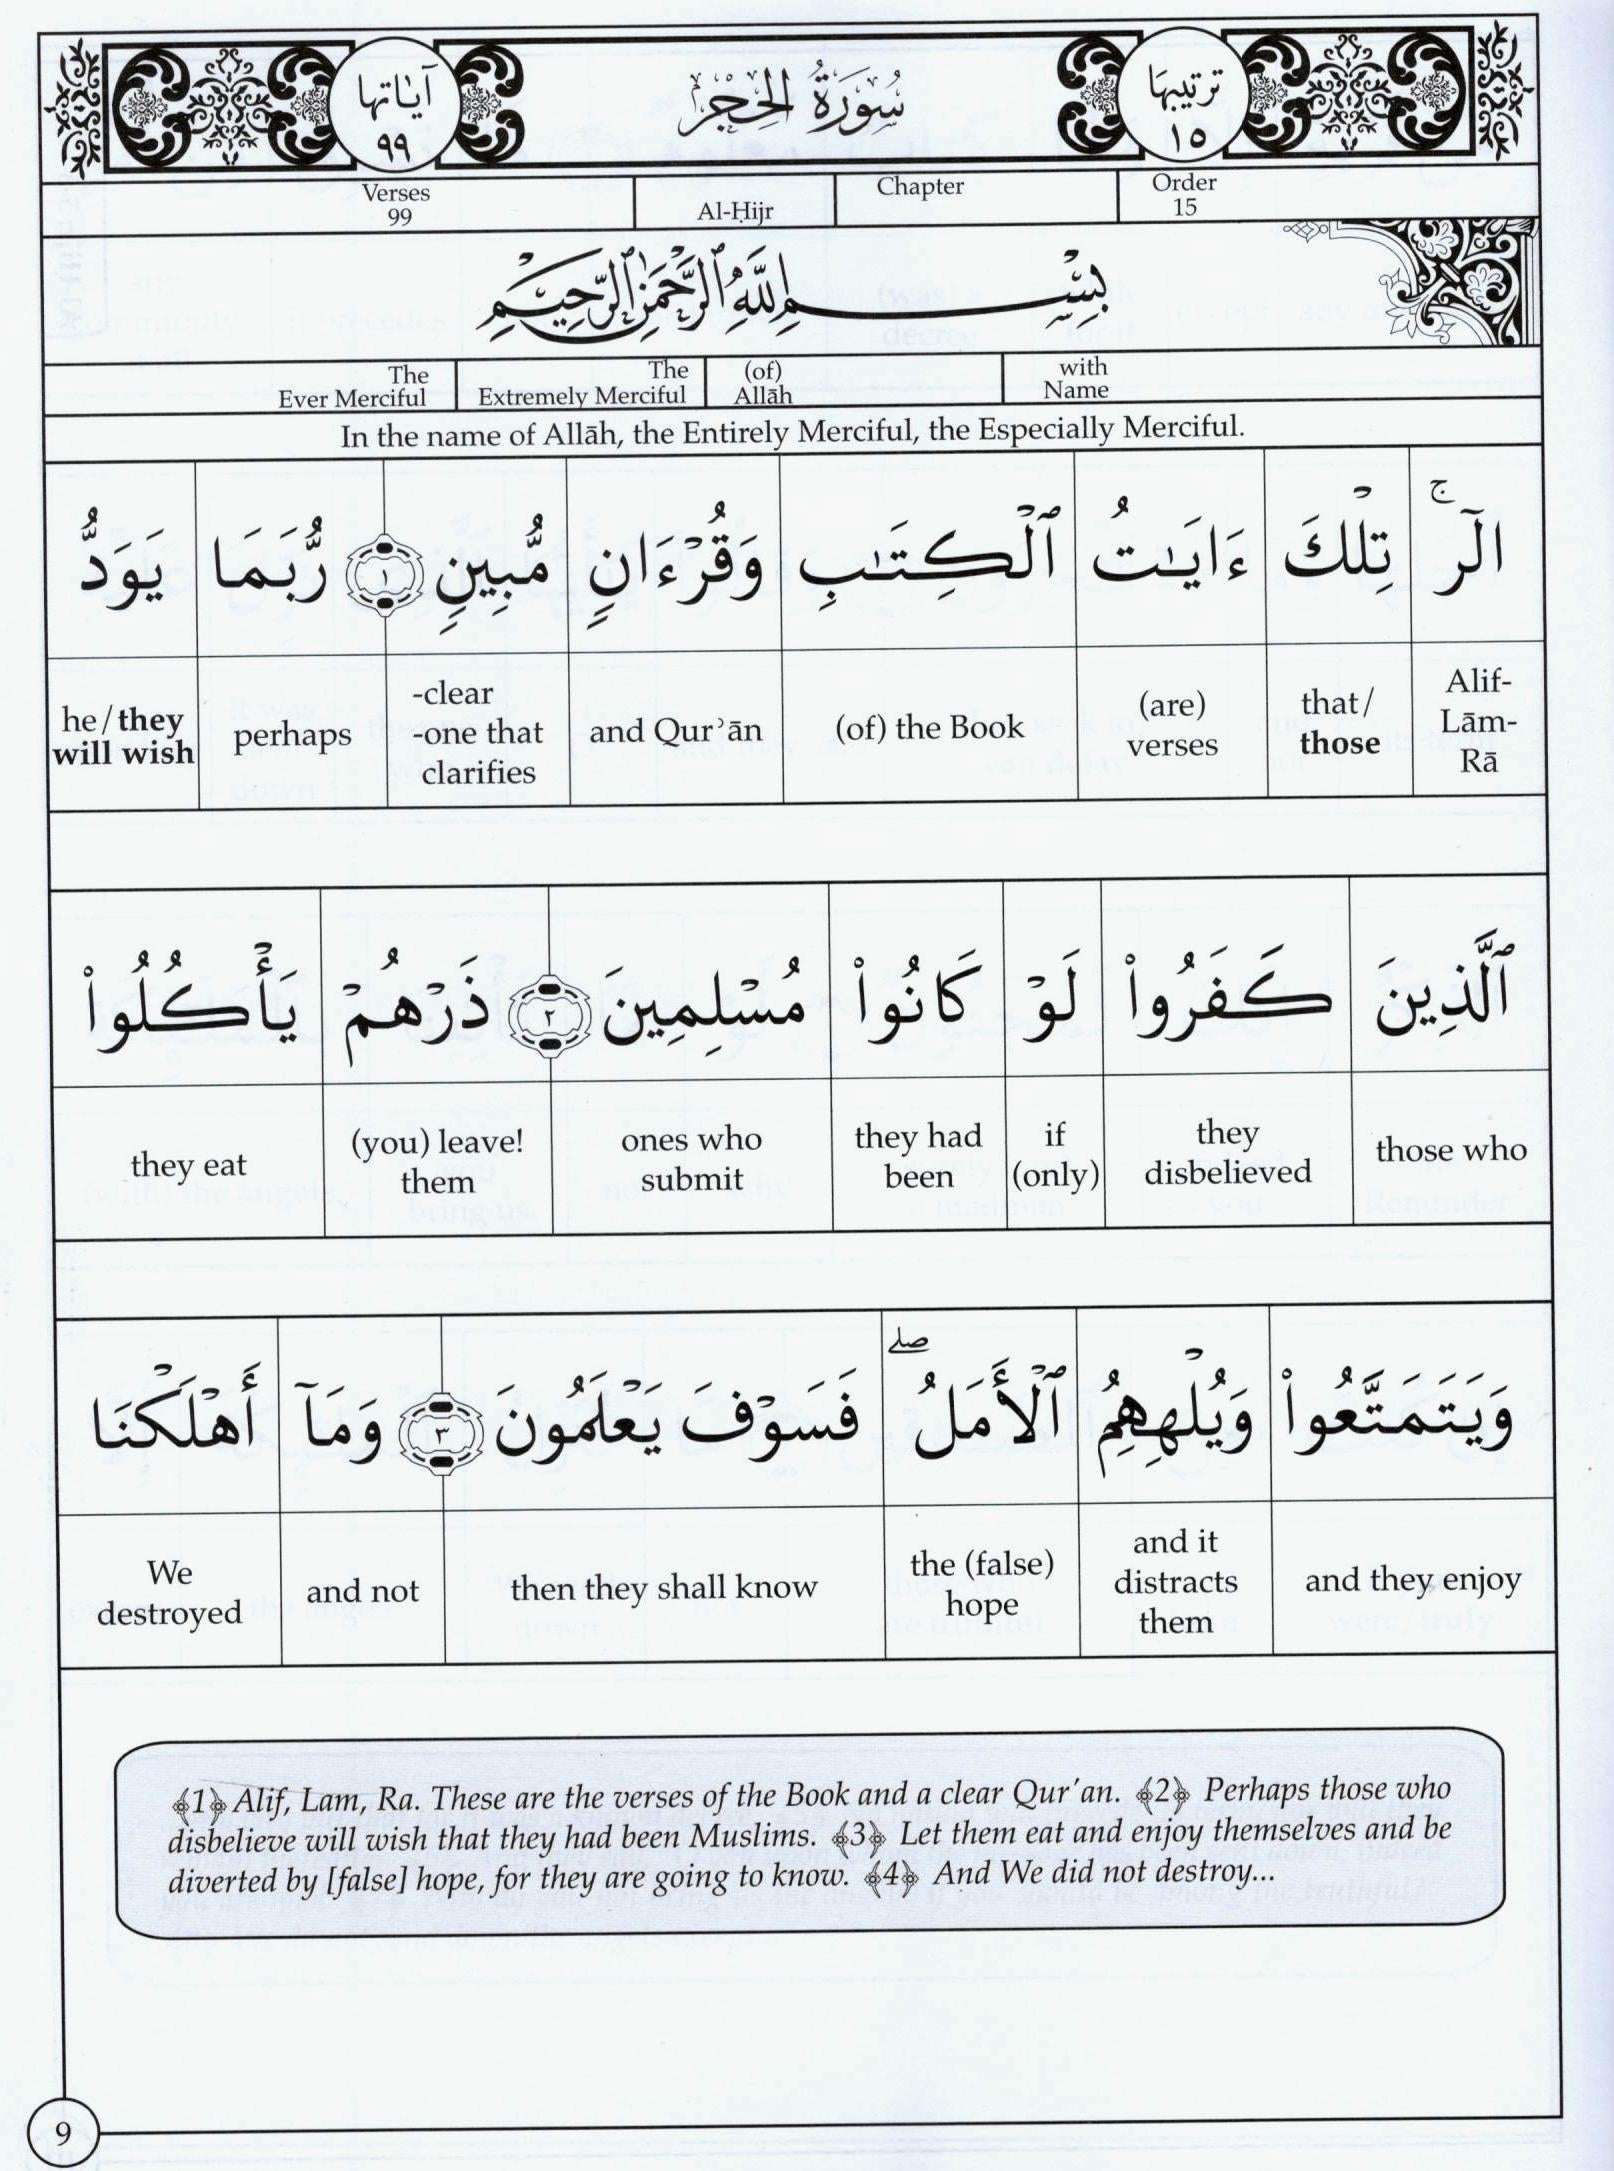 ترتيبها سُورَةُ الحِجْر آياتها
١٥ ٩٩
Order Chapter Al-Ḥijr Verses
15 99
بِسْمِ ٱللَّهِ ٱلرَّحْمَٰنِ ٱلرَّحِيمِ
with Name (of) Allāh The Extremely Merciful The Ever Merciful
In the name of Allāh, the Entirely Merciful, the Especially Merciful.
الٓر ۚ تِلْكَ ءَايَٰتُ ٱلْكِتَٰبِ وَقُرْءَانٍ مُّبِينٍ رُّبَمَا يَوَدُّ
Alif-Lām-Rā that/those (are) verses (of) the Book and Qurʾān -clear -one that clarifies perhaps he/they will wish
ٱلَّذِينَ كَفَرُوا۟ لَوْ كَانُوا۟ مُسْلِمِينَ ٢ ذَرْهُمْ يَأْكُلُوا۟
those who they disbelieved if (only) they had been ones who submit (you) leave! them they eat
وَيَتَمَتَّعُوا۟ وَيُلْهِهِمُ ٱلْأَمَلُ ۖ فَسَوْفَ يَعْلَمُونَ ٣ وَمَآ أَهْلَكْنَا
and they enjoy and it distracts them the (false) hope then they shall know and not We destroyed
﴾1﴿ Alif, Lam, Ra. These are the verses of the Book and a clear Qur'an. ﴾2﴿ Perhaps those who
disbelieve will wish that they had been Muslims. ﴾3﴿ Let them eat and enjoy themselves and be
diverted by [false] hope, for they are going to know. ﴾4﴿ And We did not destroy...
9